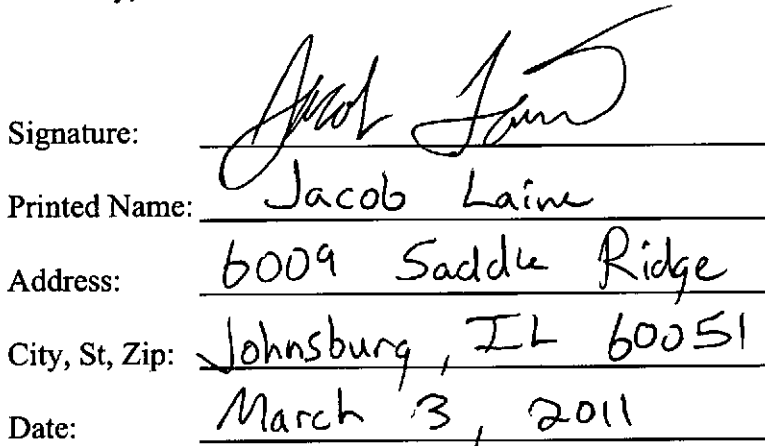 Signature: Jacob
Printed Name: Jacob Laine
Address: 6009 Saddle Ridge
City, St, Zip: Johnsburg, IL 60051
Date: March 3, 2011